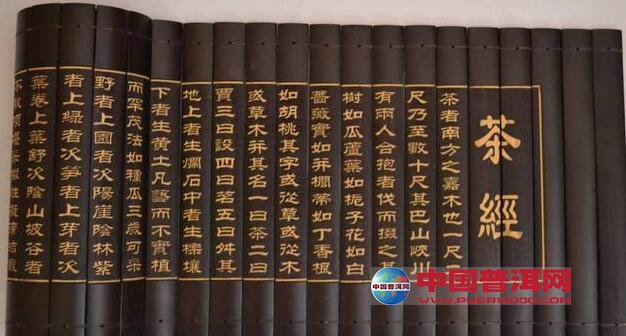 茶經
茶者南方之嘉木也一尺
尺乃至數十尺其巴山峽川
有兩人合抱者伐而掇之其
樹如瓜蘆葉如栀子花如白
薔薇實如并櫚蒂如丁香根
如胡桃其字或從草或從木
或草木并其名一曰茶二曰
賈三曰設四曰茗五曰舛其
地上者生爛石中者生櫟壤
下者生黄土凡藝而不實植
而罕茂法如種瓜三歲可采
野者上園者次陽崖陰林紫
者上綠者次笋者上芽者次
葉卷上葉舒次陰山坡谷者
中国普洱网
中国普洱网
WWW.PUER10000.COM